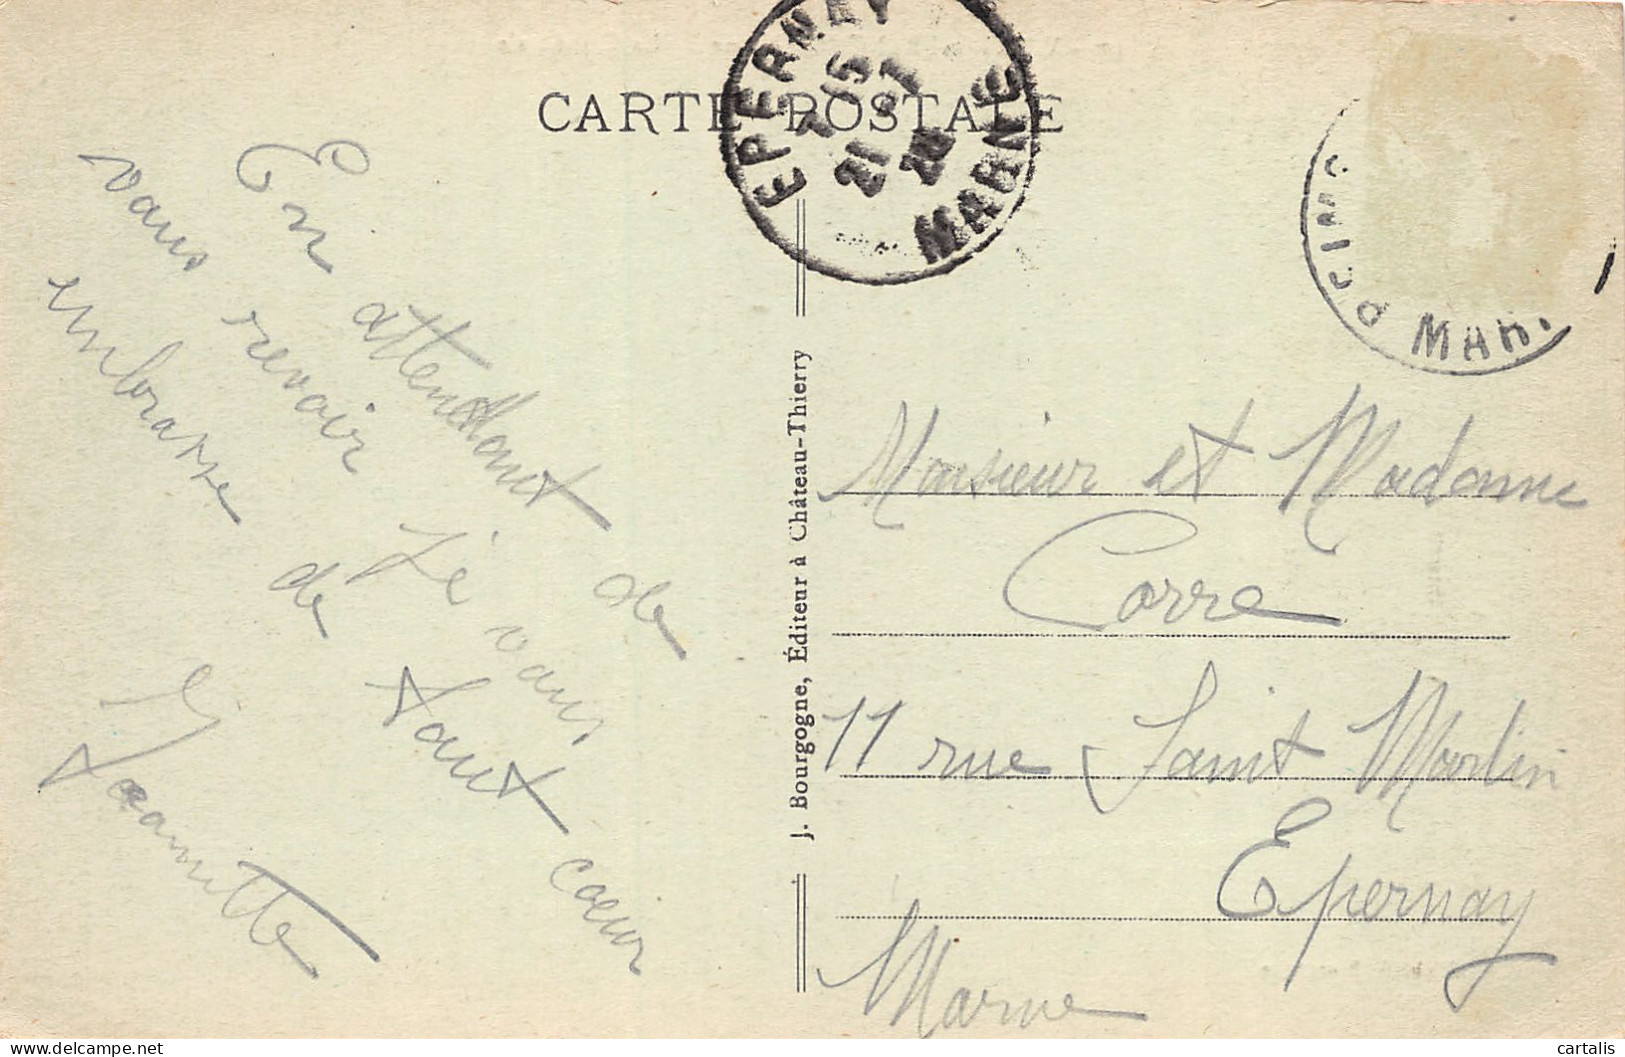 CARTE POSTALE
EPERNAY
7 15
21 - 1
28
MARNE
MAR.
En attendant de
vous revoir Je vous
embrasse de tout coeur
Jeannette
J. Bourgogne, Éditeur à Château-Thierry
Monsieur et Madame
Corre
11 rue Saint Martin
Epernay
Marne
cartalis